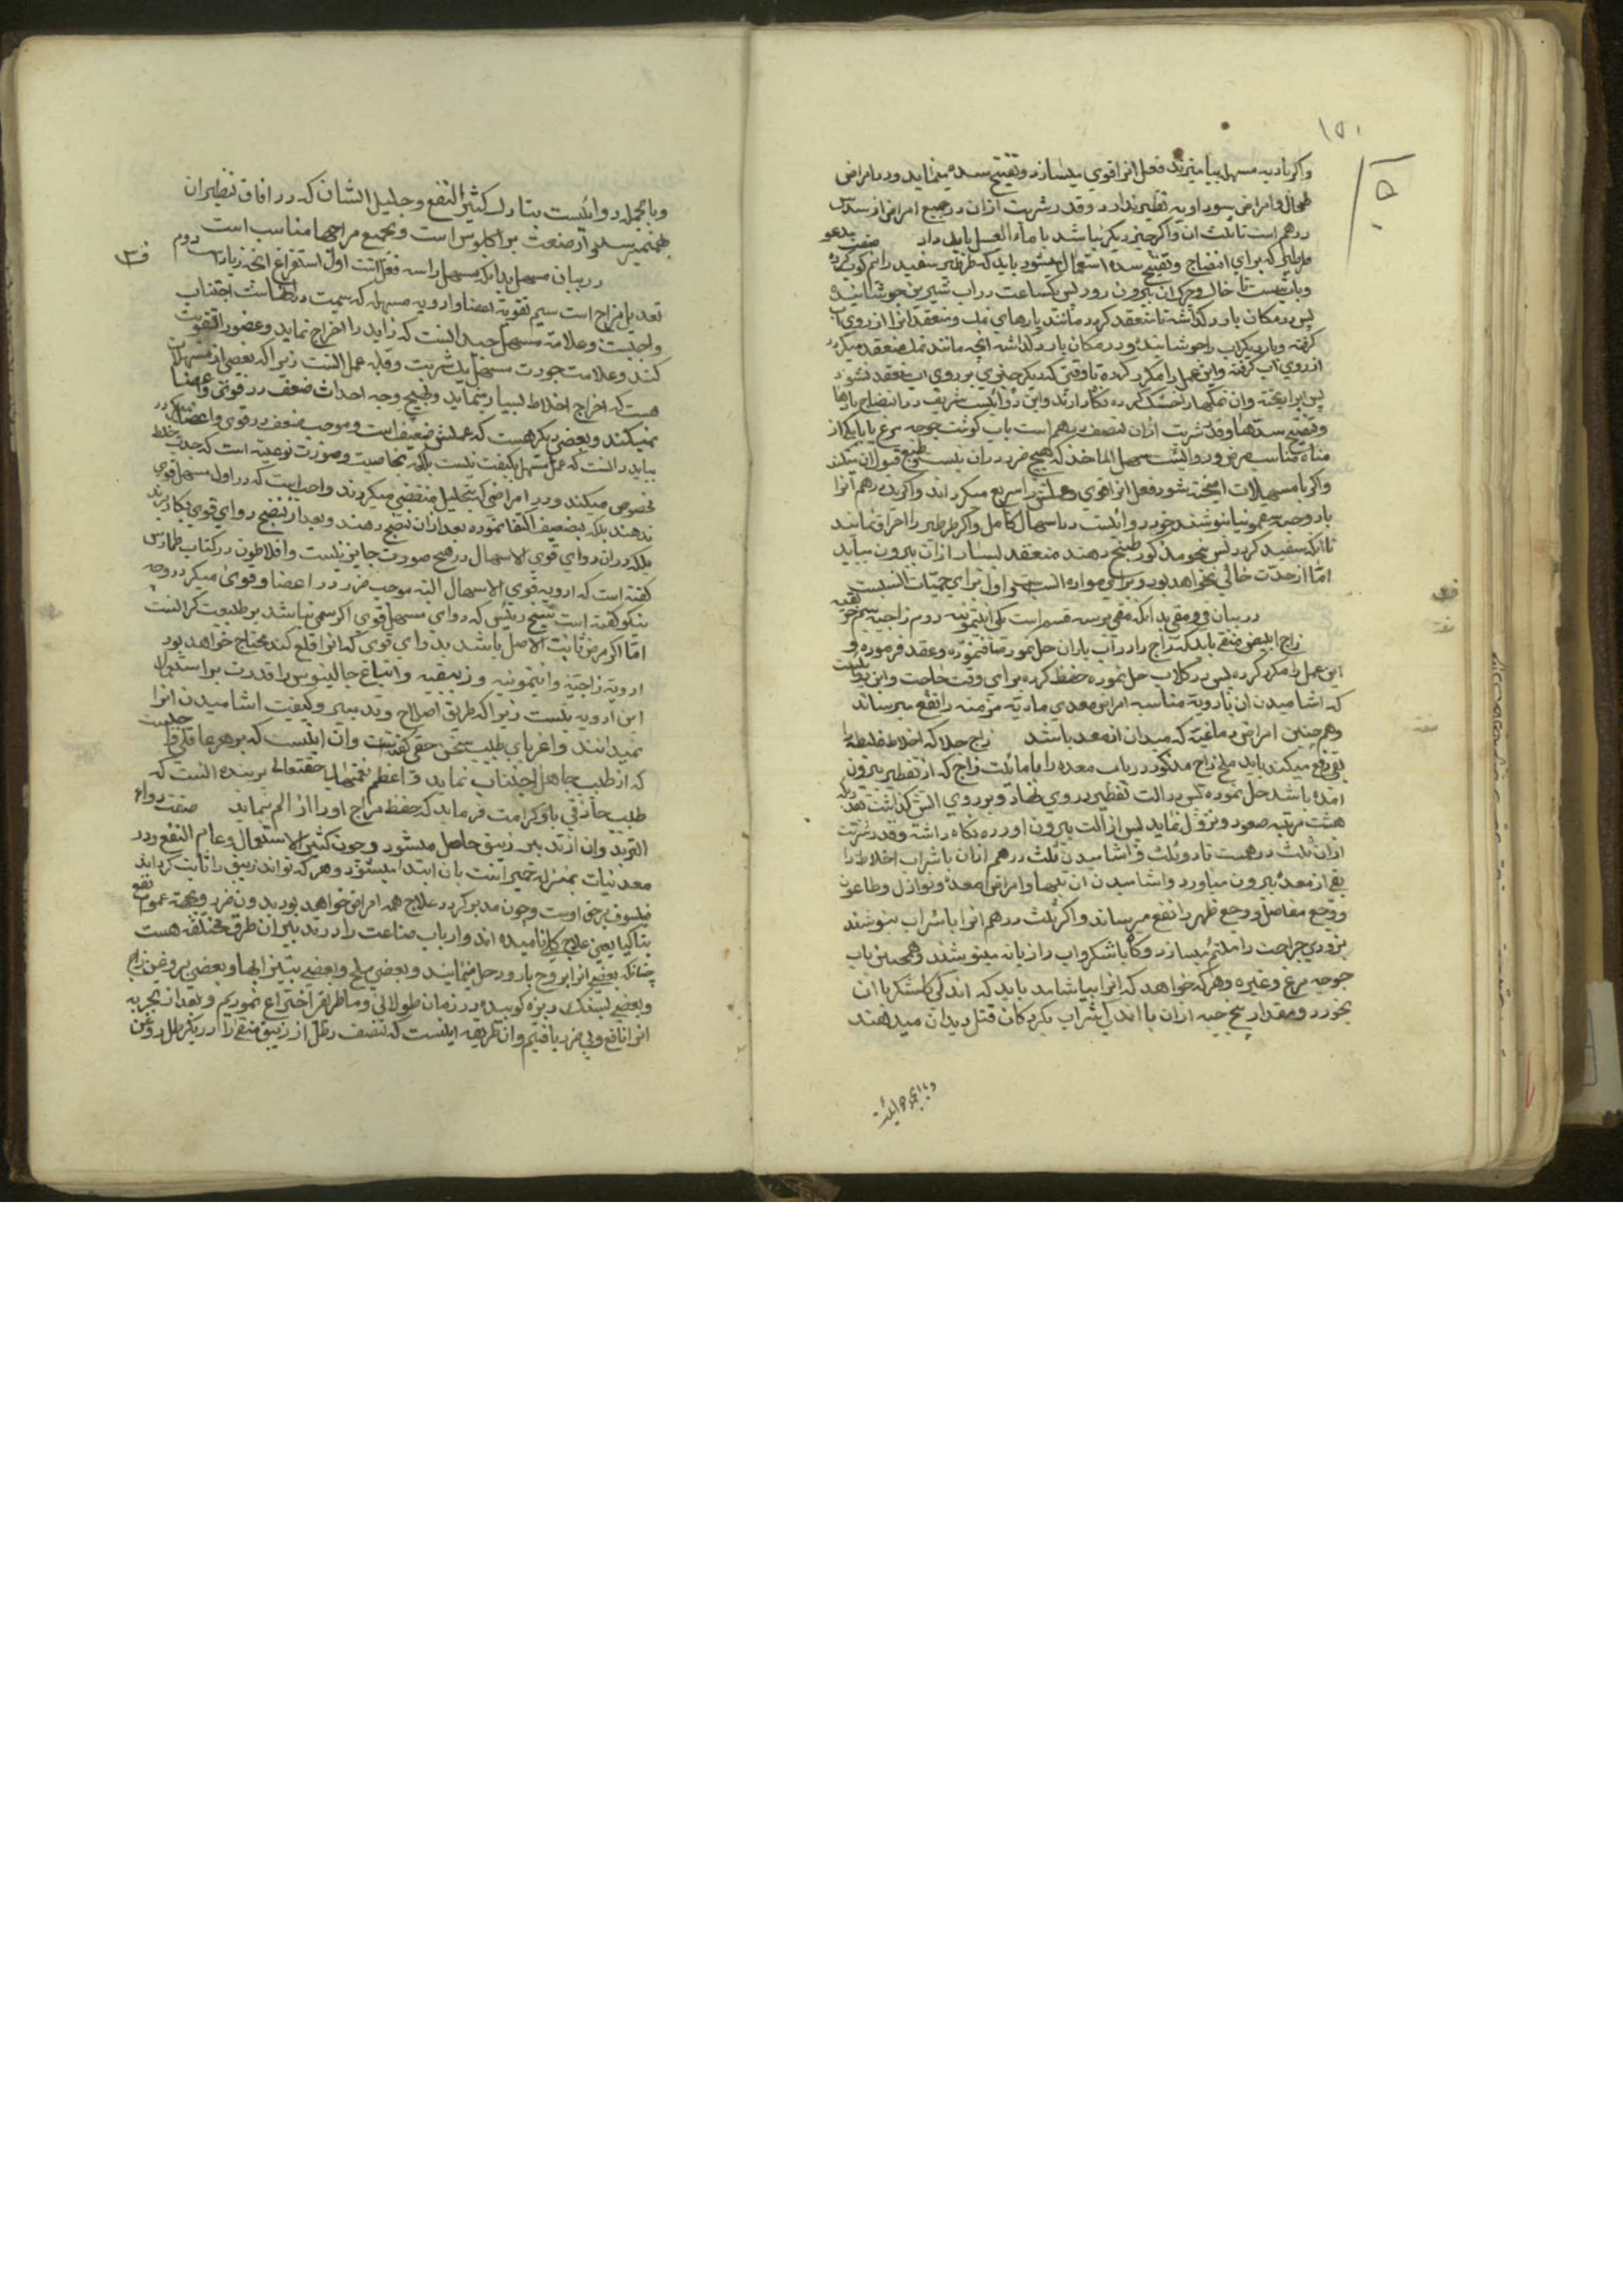 ۱۵۰
واکر بادیه مسهل بیامیزند فعل انرا قوی میسازد و تفتیح سده مینماید و در امراض
طحال و امراض سوداویه نظیر ندارد و قدر شربت ازان در جمیع امراض از سدس
درهم است تا ثلث ان واکر چیزی دیکر نباشد با ماء العسل باید داد صفت
طرطیر که برای انضاج و تفتیح سده استعمال میشود باید که طرطیر سفید را نرم کوبیده
و باب شست تا خاک و چرک ان بیرون رود پس یکساعت در اب شیرین جوشانیده
پس در مکان بارد کذاشته تا منعقد کردد مانند پارهای نمک و منعقد انرا از روی اب
کرفته و بار دیکر اب را جوشانیده و در مکان بارد کذاشه انچه مانند نمک منعقد میکردد
از روی اب کرفته و این عمل را مکرر کرده تا وقتی که دیکر چیزی بر روی اب منعقد نشود
پس ابرا ریخته وان نمکها را خشک کرده نکاه دارند و این دوائیست شریف در انضاج مادها
و تفتیح سدها و قدر شربت ازان نصف درهم است باب کوشت جوجه مرغ یا با یکی از
میاه مناسب مرض و دوائیست سهل الماخذ که هیچ ضرر در ان نیست و طبع قبول ان میکند
واکر با مسهلات امیخته شود فعل انرا قوی و عملش را سریع میکرداند واکر یک درهم انرا
با دو حبه سقمونیا بنوشند خود دوائیست در اسهال کامل واکر طرطیر را احراق نمایند
تا انکه سفید کردد پس بنحو مذکور طبخ دهند منعقد بسیار ازان بیرون میاید
امّا از حدّت خالی نخواهد بود و برای مواد السبب و اول برای حمیات انسبست
در بیان قی و مقی بدانکه مقی بر سه قسم است یکی انتیمونیه دوم زاجیه سیم خربقیه
زاج ابیض منقی باید که زاج را در اب باران حل نمود صاف نموده و عقد فرموده و
این عمل را مکرر کرده پس در کلاب حل نموده حفظ کرده برای وقت حاجت و این دوائیست
که اشامیدن ان با ادویة مناسبه امراض معدی مادیة مزمنه را نفع میرساند
و همچنین امراض دماغیّه که مبدأ ان از معده باشد زاج جلا که اخلاط غلیظه را
بقی دفع میکند باید ملح زاج مذکور در باب معده را با مائیت زاج که از تقطیر بیرون
امده باشد حل نموده پس در الت تقطیر در روی نهاد و بر روی اتش کذاشت تا انکه
هشت مرتبه صعود و نزول نماید پس از الت بیرون اورده نکاه داشته و قدر شربت
ازان ثلث درهمست تا دو ثلث و اشامیدن ثلث درهم ازان با شراب اخلاط را
بقی از معده بیرون میاورد و اشامیدن ان تبها و امراض معده و نوازل و طاعون
و وجع مفاصل و وجع ظهر را نفع میرساند واکر ثلث درهم انرا با شراب بنوشند
بزودی جراحت را ملتئم میسازد و کاه با شکر و اب رازیانه مینوشند و همچنین باب
جوجه مرغ و غیره و هر که خواهد که انرا بیاشامد باید که اندکی کاسنکر با ان
بخورد و مقدار پنج حبه ازان با اندکی شراب بکودکان قتل دیدان میدهند
و بالجمله دوائیست
و بالجمله دوائیست مبارک کثیر النفع و جلیل الشان که در افاق نظیر ان
است و بجمیع مزاجها مناسب است
در بیان مسهل بدانکه مسهل را سه فعل است اول استفراغ انچه زیاد است دوم
تعدیل مزاج است سیم تقویة اعضا و ادویه مسهله که سمیت در انهاست اجتناب
واجبست و علامة مسهل جید انست که زاید را اخراج نماید و عضو را تقویت
کند و علامت جودت مسهل یک شربت و قلّه عمل انست زیرا که بعضی از مسهلات
هست که اخراج اخلاط بسیار مینماید و هیچ وجه احداث ضعف در قوی و اعضا
نمیکند و بعضی دیکر هست که عملش ضعیف است و موجب ضعف در قوی و اعضا میکردد
بباید دانست که عمل مسهل بکیفت نیست بلکه بخاصیت و صورت نوعیه است که جذب خلط
مخصوص میکند و در امراضی که بتحلیل منقضی میکردند واجب است که در اول مسهل قوی
ندهند بلکه بضعیف اکتفا نموده بعد ازان نضج دهند و بعد از نضج دوای قوی بکار برند
بلکه در ان دوای قوی الاسهال در هیچ صورت جایز نیست و افلاطون در کتاب طیماوس
کفته است که ادویه قوی الاسهال البته موجب ضرر در اعضا و قوی میکردد و چه
نیکو کفته است شیخ رئیس که دوای مسهل قوی اکر سمی نباشد بر طبیعت کرانست
امّا اکر مرض ثابت الاصل باشد بدوای قوی که انرا قلع کند محتاج خواهد بود
ادویة زاجیّه و انتیمونیه و زیبقیه و اتباع جالینوس را قدرت بر استعمال
این ادویه نیست زیرا که طریق اصلاح و تدبیر و کیفیت اشامیدن انرا
نمیدانند و اغریای طبیب سخن حقی کفتست وان اینست که بر هر عاقلی واجبست
که از طبیب جاهل اجتناب نماید و اعظم نعمتهای حقتعالی بر بنده انست که
طبیب حاذقی باو کرامت فرماید که حفظ مزاج او را از الم نماید صفت دواء
التربد وان از تدبیر زیبق حاصل میشود و چون کثیر الاستعمال و عام النفع و در
معدنیات بمنزله خمیر است بان ابتدا میشود و هر که تواند زیبق را ثابت کرداند
فیلسوف برحق اوست و چون مدبر کردد علاج همه امراض خواهد بود بدون ضرر و بجهة عموم نفع
بناکیا یعنی علاج کل نامیده اند و ارباب صناعت را در تدبیر ان طرق مختلفه هست
چنانکه بعضی انرا بروح بارود حل مینمایند و بعضی بملح و بعضی بتیزابها و بعضی بروغن زاج
و بعضی بسنک ریزه کوبیده در زمان طولانی و ما طریقی اختراع نمودیم و بعد از تجربه
انرا نافع و بی ضرر یافتیم وان طریقه اینست که نصف رطل از زیبق منقی را در یک رطل روغن